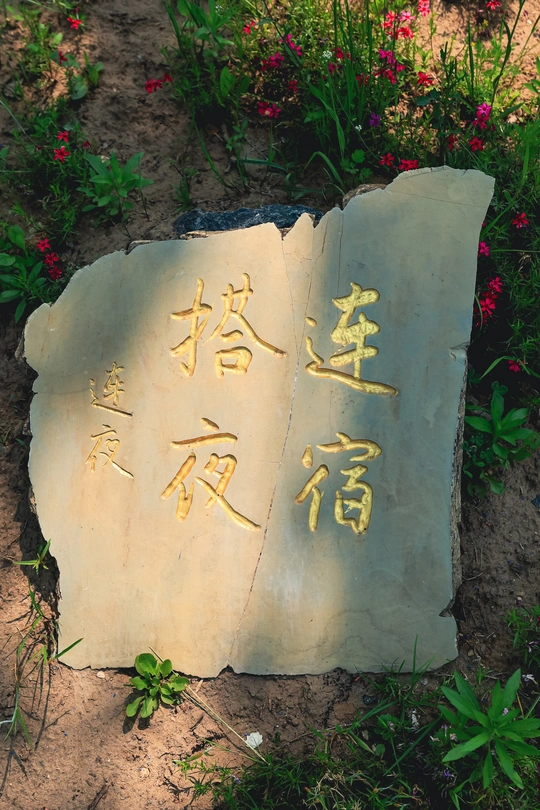 连宿
搭夜
连夜